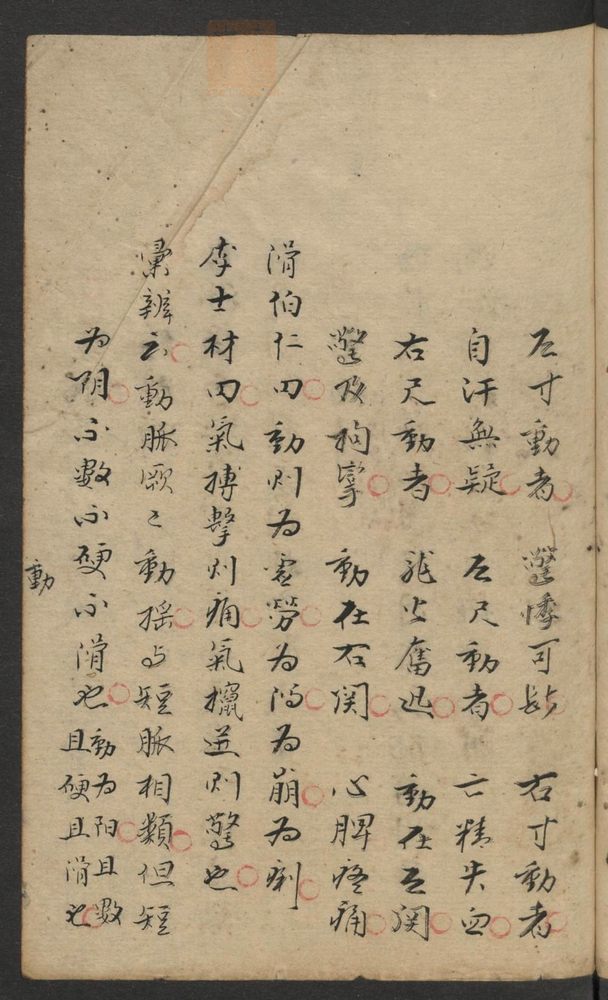 左寸動者　驚悸可断　右寸動者
自汗無疑　左尺動者　亡精失血
右尺動者　龍火奮迅　動在左関
驚及拘攣　動在右関　心脾疼痛
滑伯仁曰動則为虚勞为汤为崩为痢
李士材曰氣搏擊則痛氣攛迸則驚也
彙辨云動脉厥〻動摇与短脉相類但短
为阴不數不硬不滑也動为阳且數
且硬且滑也
動